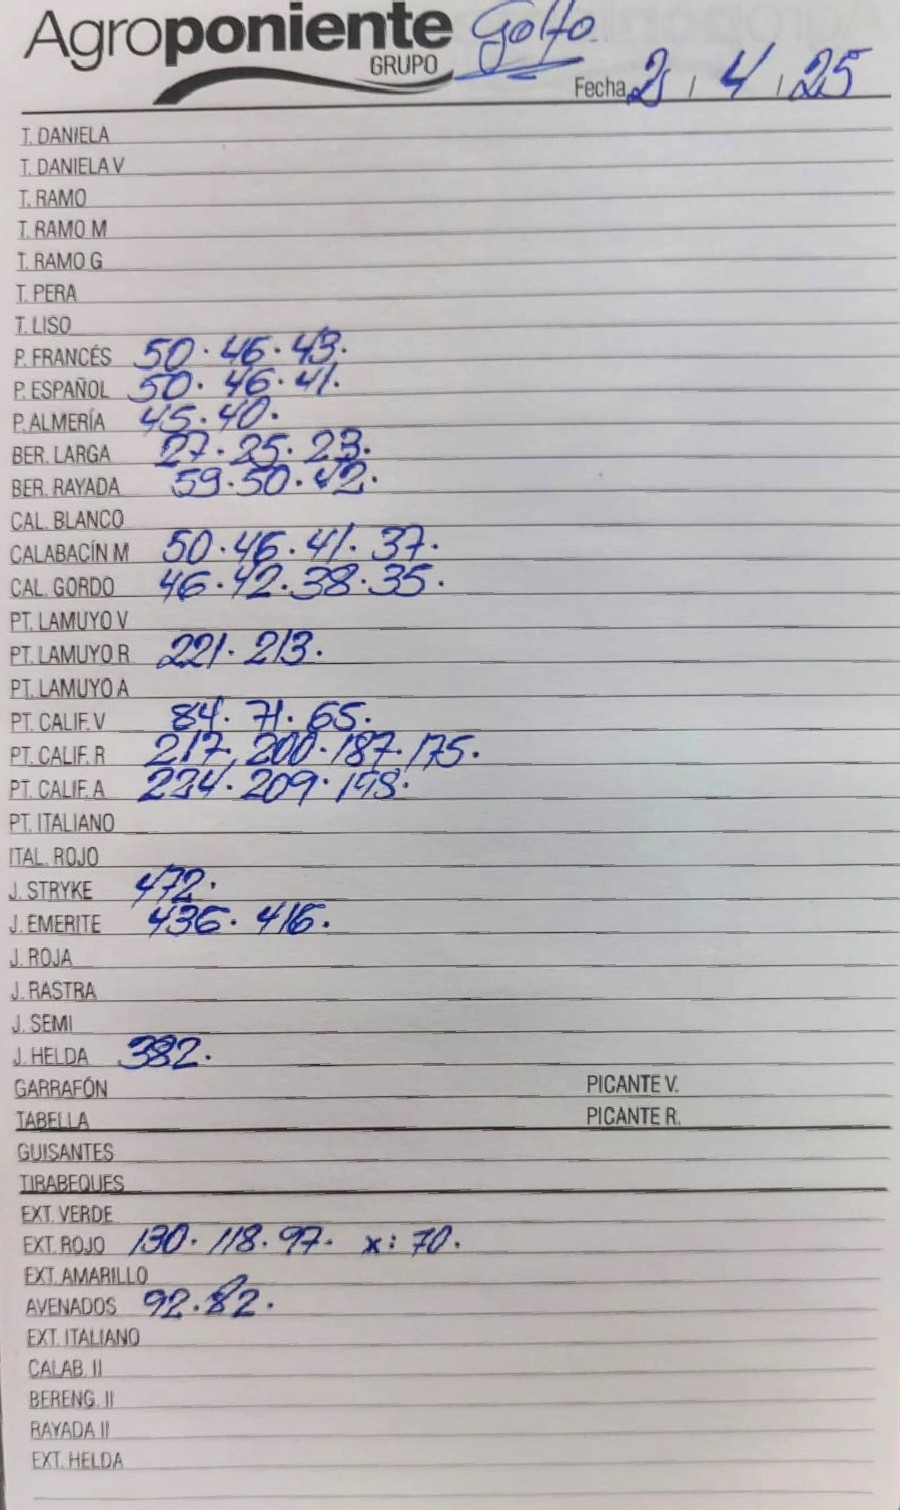 Agroponiente Golfo
GRUPO
Fecha 2 / 4 / 25
T. DANIELA
T. DANIELA V
T. RAMO
T. RAMO M
T. RAMO G
T. PERA
T. LISO
P. FRANCÉS 50 · 46 · 43 ·
P. ESPAÑOL 50 · 46 · 41 ·
P. ALMERÍA 45 · 40 ·
BER. LARGA 27 · 25 · 23 ·
BER. RAYADA 59 · 50 · 42 ·
CAL. BLANCO
CALABACÍN M 50 · 46 · 41 · 37 ·
CAL. GORDO 46 · 42 · 38 · 35 ·
PT. LAMUYO V
PT. LAMUYO R 221 · 213 ·
PT. LAMUYO A
PT. CALIF. V 84 · 71 · 65 ·
PT. CALIF. R 217 · 200 · 187 · 175 ·
PT. CALIF. A 224 · 209 · 198 ·
PT. ITALIANO
ITAL. ROJO
J. STRYKE 472 ·
J. EMERITE 436 · 416 ·
J. ROJA
J. RASTRA
J. SEMI
J. HELDA 382 ·
GARRAFÓN PICANTE V.
TABELLA PICANTE R.
GUISANTES
TIRABEQUES
EXT. VERDE
EXT. ROJO 130 · 118 · 97 · x: 70 ·
EXT. AMARILLO
AVENADOS 92 · 82 ·
EXT. ITALIANO
CALAB. II
BERENG. II
RAYADA II
EXT. HELDA